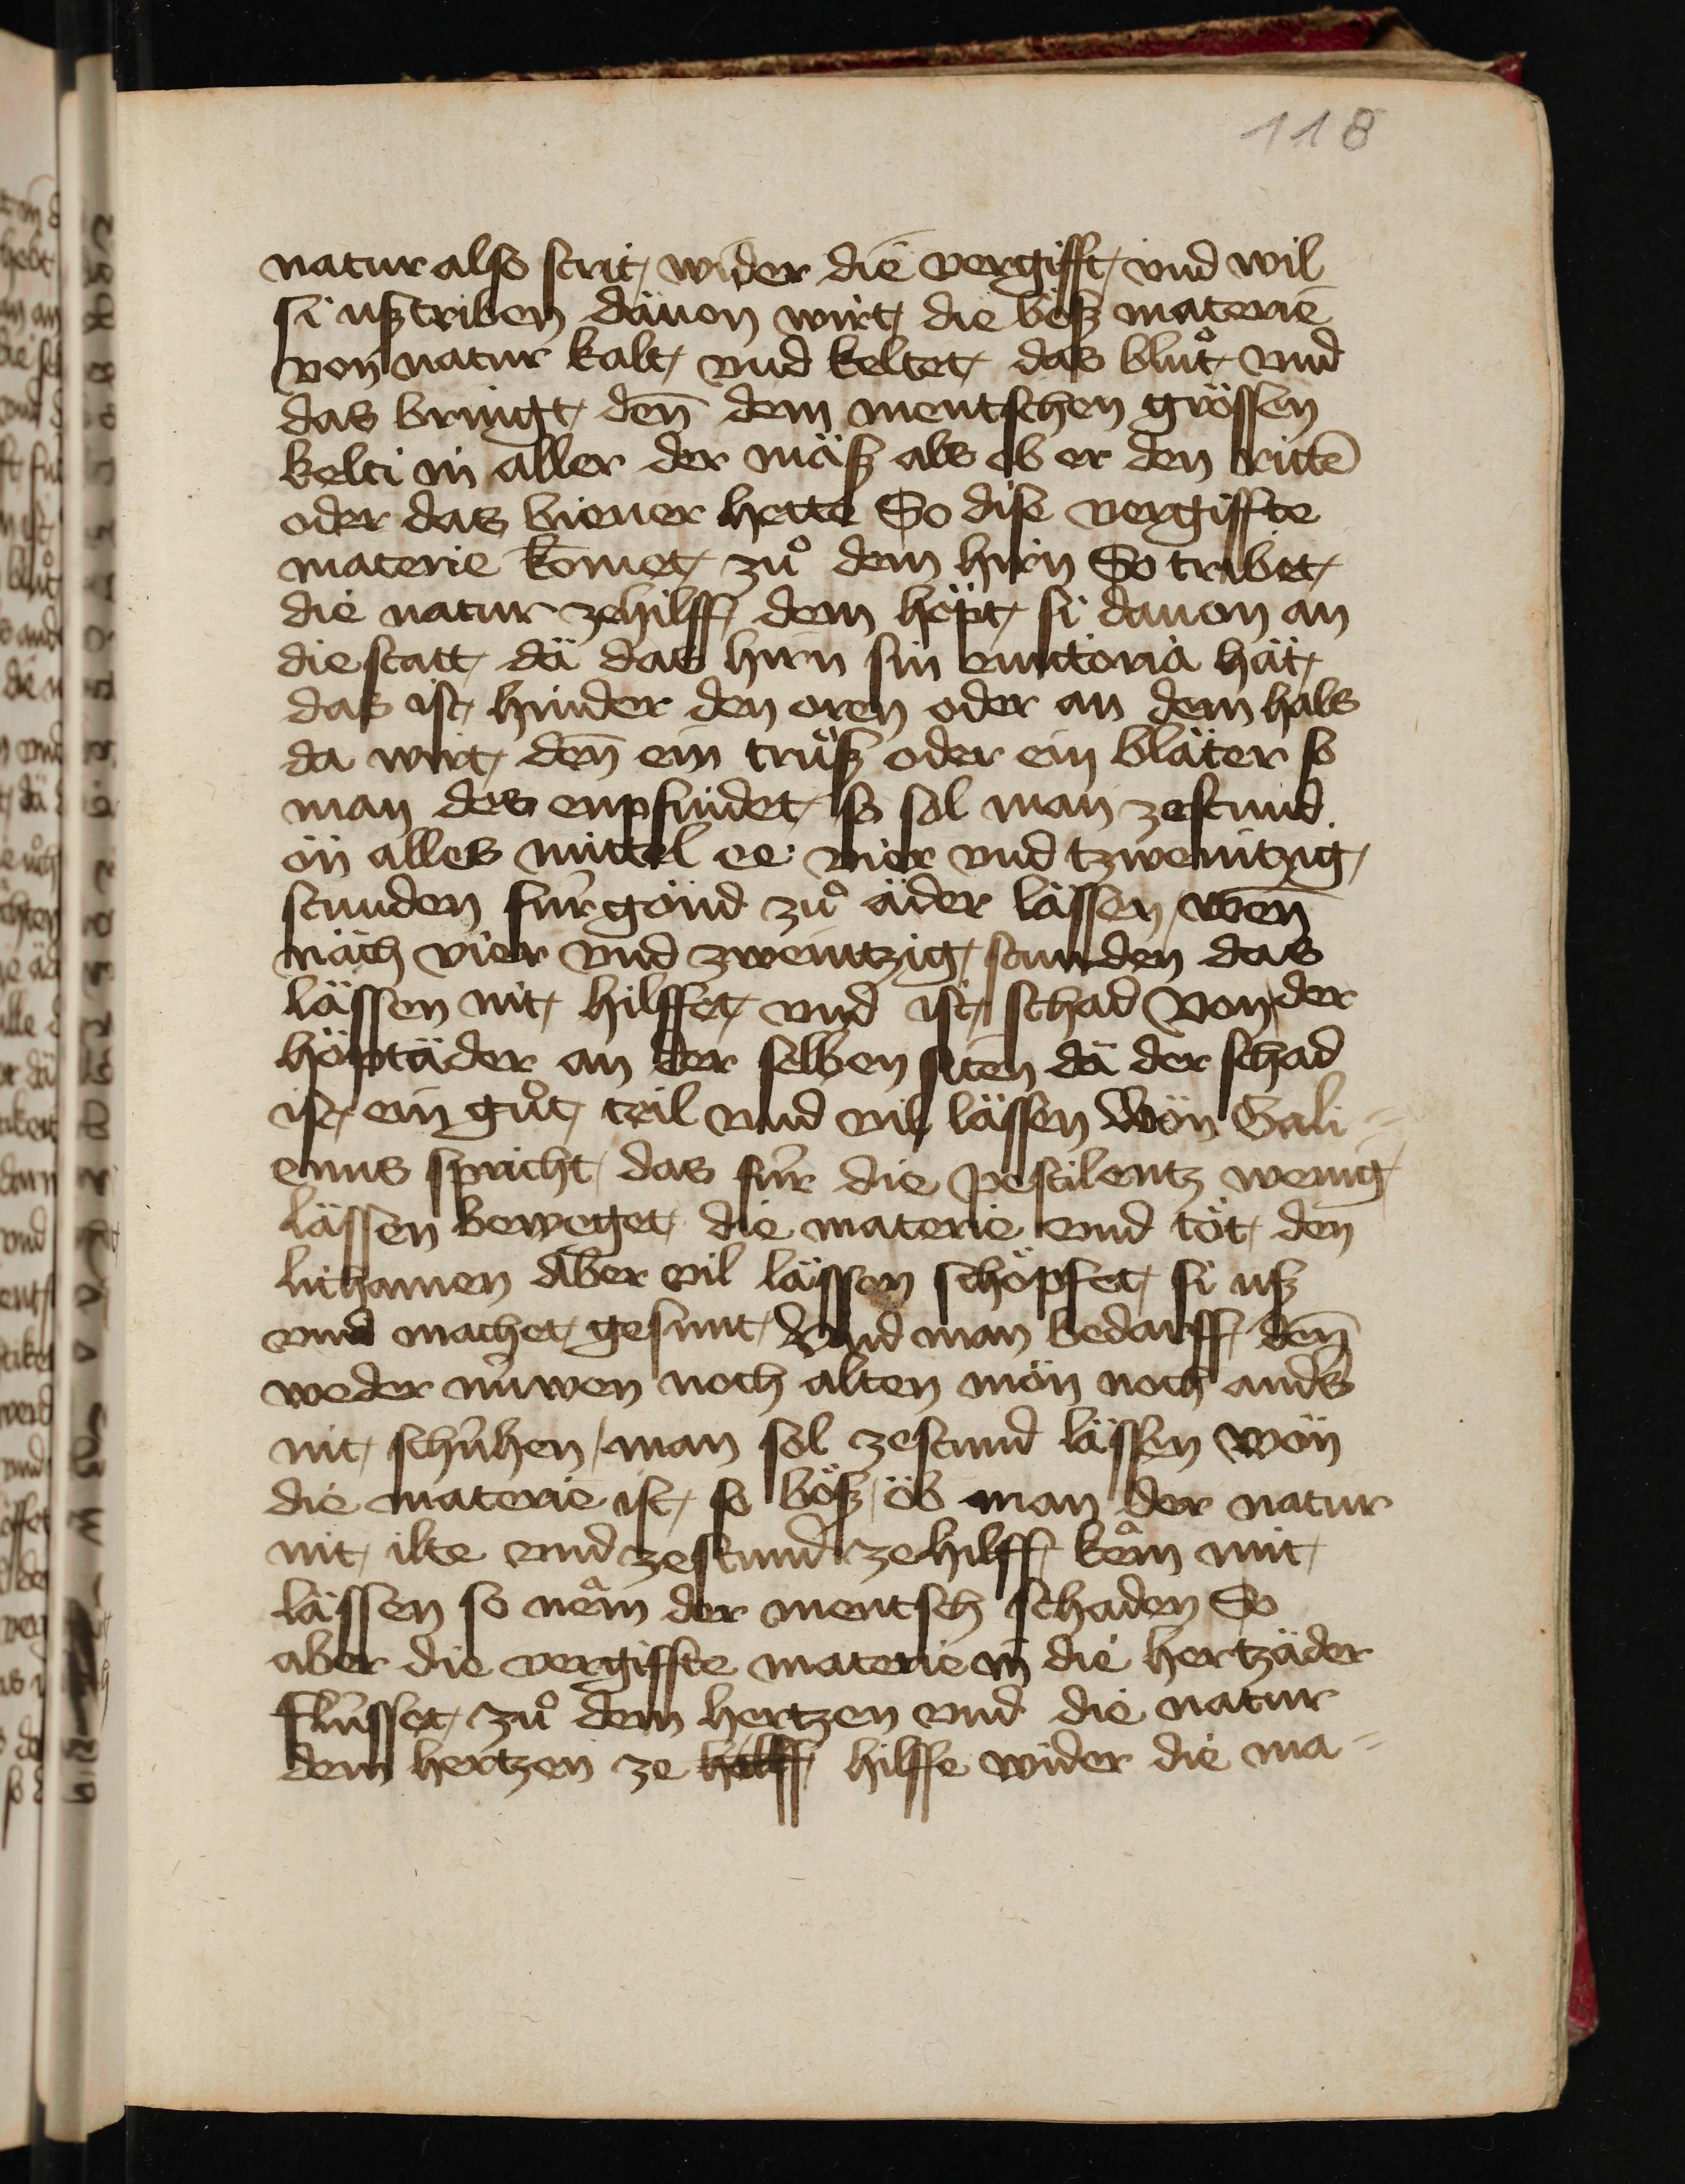 118
natur also strit wider die vergifft vnd wil
si usztriben dăuon wirt die bösz materie
von natur kalt vnd keltet das blůt vnd
das bringt den̄ dem mentschen grössen
kelti in aller der mäsz als ob er den rittē
oder das biener hette So dise vergiffte
materie kom̄et zů dem hirn So tribet
die natur zehilff dem höpt si dauon an
die statt dä das hirn sin emitoria hät
das ist hinder den oren oder an dem hals
da wirt den̄ ein trüsz oder ein bläter so
man des enpfindet so sol man zestund
ön alles mittel ee vier vnd tzwenitzig
stunden fürgönd zů äder lässen wen̄
näch vier vnd zwenitzig stunden das
lässen nit hilffet vnd ist schad von der
höptäder an der selben siten dä der schad
ist ein gůt teil vnd vil lässen Wön Gali-
enus spricht das für die pestilentz wenig
lässen beweget die materie vnd töt den
lichamen Aber vil lässen schöpfet si usz
vnd machet gesunt Vnd man bedarff den̄
weder nüwen noch alten mön noch anders
nit schühen / man sol zestund lässen wön
die materie ist so bösz öb man der natur
nit ilte vnd zestund ze hilff kem̄ mit
lässen so nem̄ der mentsch schaden So
aber die vergiffte materie in die hertzäder
flüsset zů dem hertzen vnd die natur
dem hertzen ze hilff hilffe wider die ma-